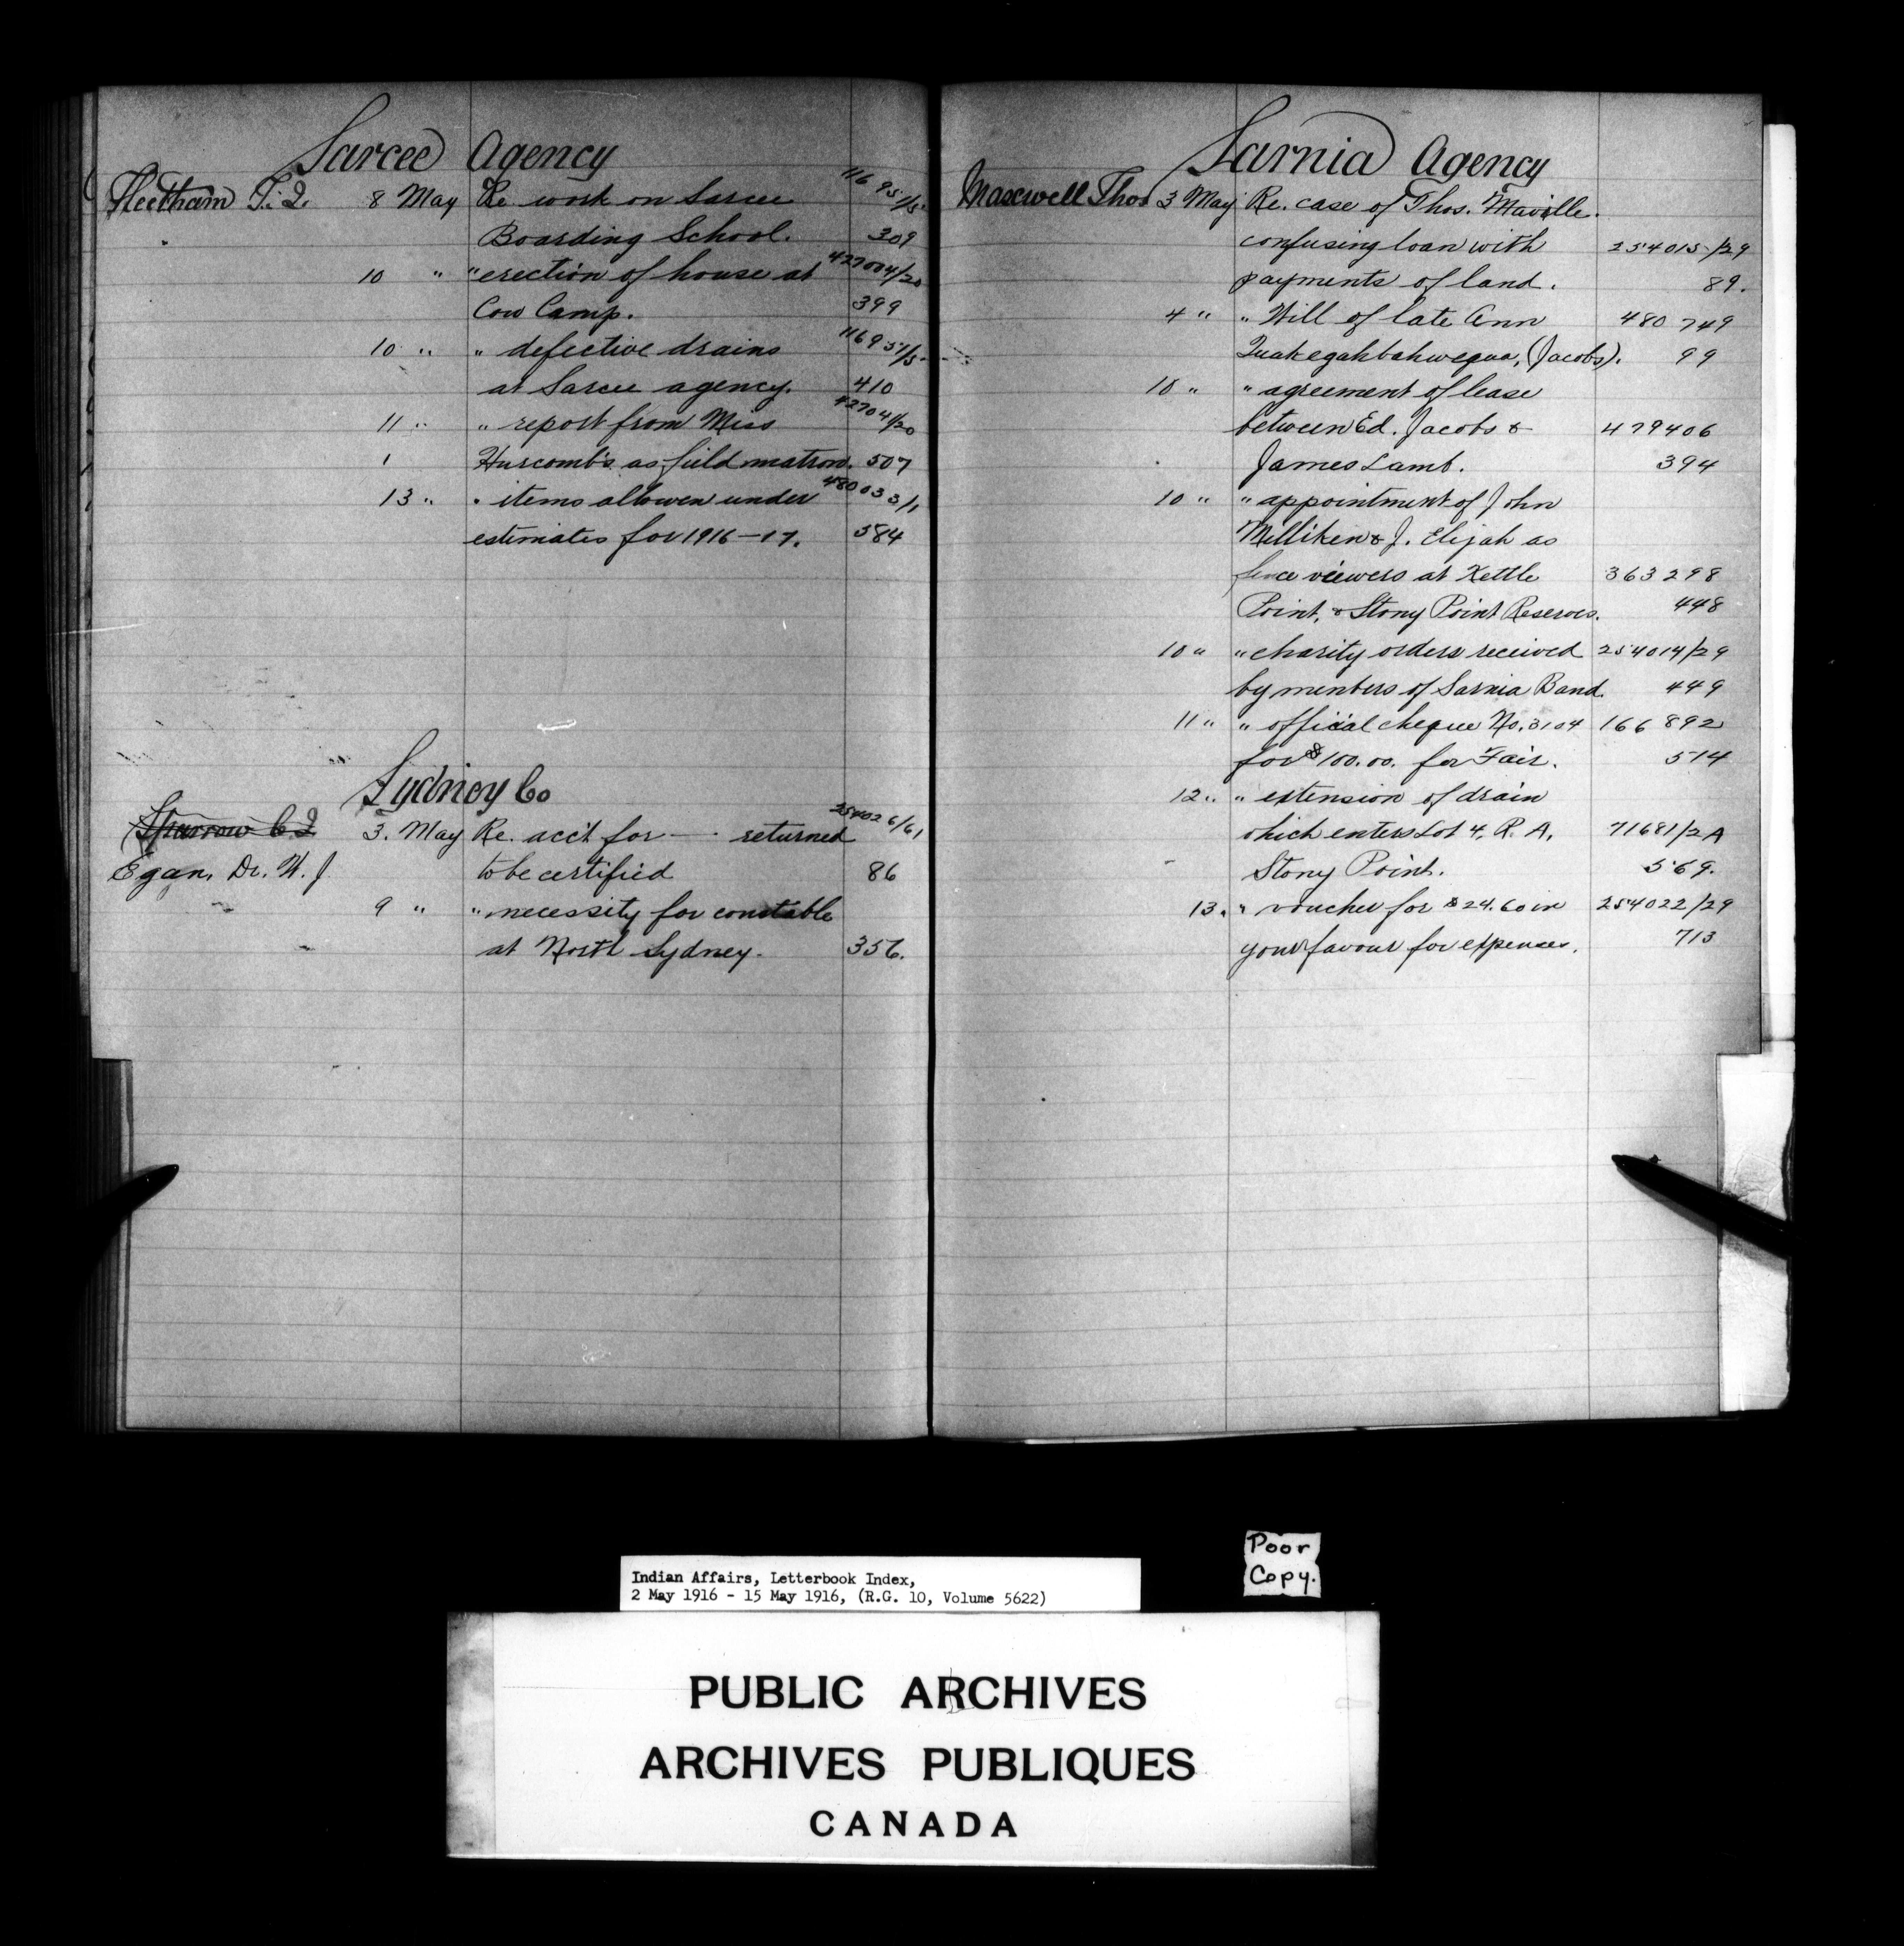 Sarcee Agency
Fleetham T. J. 8 May Re work on Sarcee 11695/5
Boarding School. 309
10 " " erection of house at 427004/20
Cow Camp. 399
10 " " defective drains 11695/5
at Sarcee agency. 410
11 " " report from Miss 42704/20
as field matron. 507
13 " " items allowen under 480033/1
estimates for 1916-17. 584
Sydney Co
Sparrow C. J. 3. May Re. acc't for — returned 254026/61
Egan, Dr. W. J. to be certified 86
9 " " necessity for constable
at North Sydney. 356.
Sarnia Agency
Maxwell Thos 3 May Re. case of Thos. Maville.
confusing loan with 254015/29
payments of land. 89.
4 " " Will of late Ann 480 749
Quakegahbahwequa, (Jacobs). 99
10 " " agreement of lease
between Ed. Jacobs & 479406
James Lamb. 394
10 " " appointment of John
Milliken & J. Elijah as
fence viewers at Kettle 363298
Point, & Stony Point Reserves. 448
10 " " charity orders received 254014/29
by members of Sarnia Band. 449
11 " " official cheque No. 3104 166892
for $100.00. for Fair. 514
12 " " extension of drain
which enters Lot 4, R. A, 71681/2A
Stony Point. 569.
13. " voucher for $24.60 in 254022/29
your favour for expenses. 713
Poor
Copy.
Indian Affairs, Letterbook Index,
2 May 1916 - 15 May 1916, (R.G. 10, Volume 5622)
PUBLIC ARCHIVES
ARCHIVES PUBLIQUES
CANADA